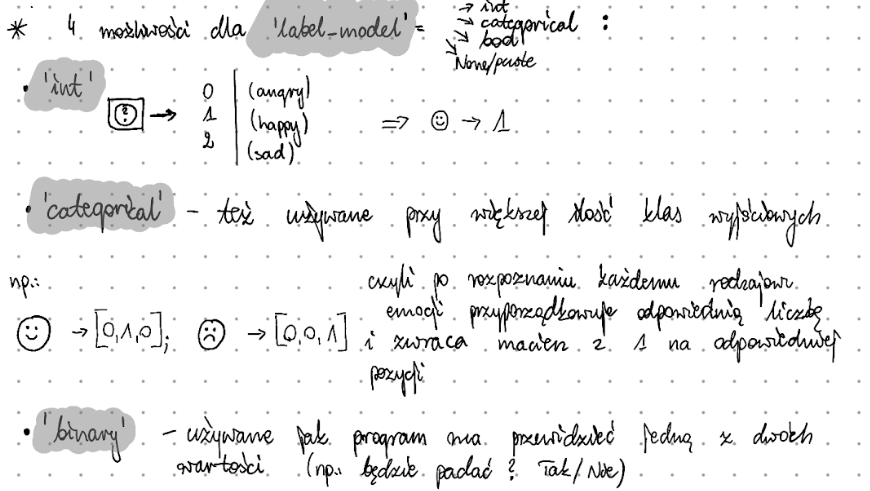 * 4 możliwości dla 'label_model' = → int
→ categorical :
→ bool
None/puste
• 'int'
0 (angry)
1 (happy) ⇒ ☺ → 1
2 (sad)
• 'categorical' - też używane przy większej ilość klas wyjściowych
np.:
☺ → [0,1,0]; ☹ → [0,0,1]
czyli po rozpoznaniu każdemu rodzajowi
emocji przyporządkowuje odpowiednią liczbę
i zwraca macierz z 1 na odpowiedniej
pozycji
• 'binary' - używane jak program ma przewidzieć jedną z dwóch
wartości (np.: będzie padać ? Tak/Nie)